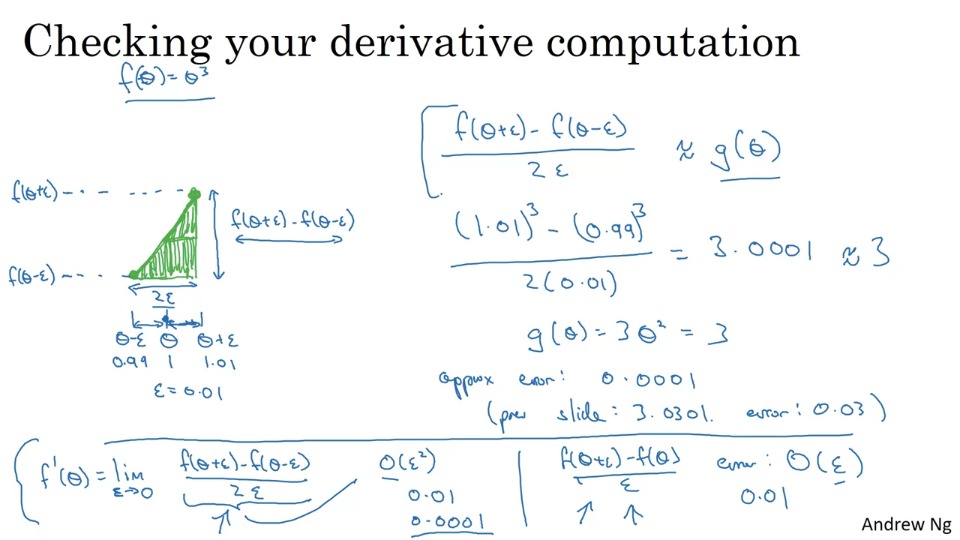 Checking your derivative computation
f(θ) = θ³
f(θ+ε) - f(θ-ε)
2ε
≈ g(θ)
f(θ+ε) - - - - - -
f(θ+ε) - f(θ-ε)
(1.01)³ - (0.99)³
2(0.01)
= 3.0001 ≈ 3
f(θ-ε) - - -
2ε
θ-ε θ θ+ε
0.99 1 1.01
ε = 0.01
g(θ) = 3θ² = 3
approx error: 0.0001
(prev slide: 3.0301. error: 0.03)
f'(θ) = lim ε→0
f(θ+ε) - f(θ-ε)
2ε
O(ε²)
0.01
0.0001
f(θ+ε) - f(θ)
ε
error: O(ε)
0.01
Andrew Ng